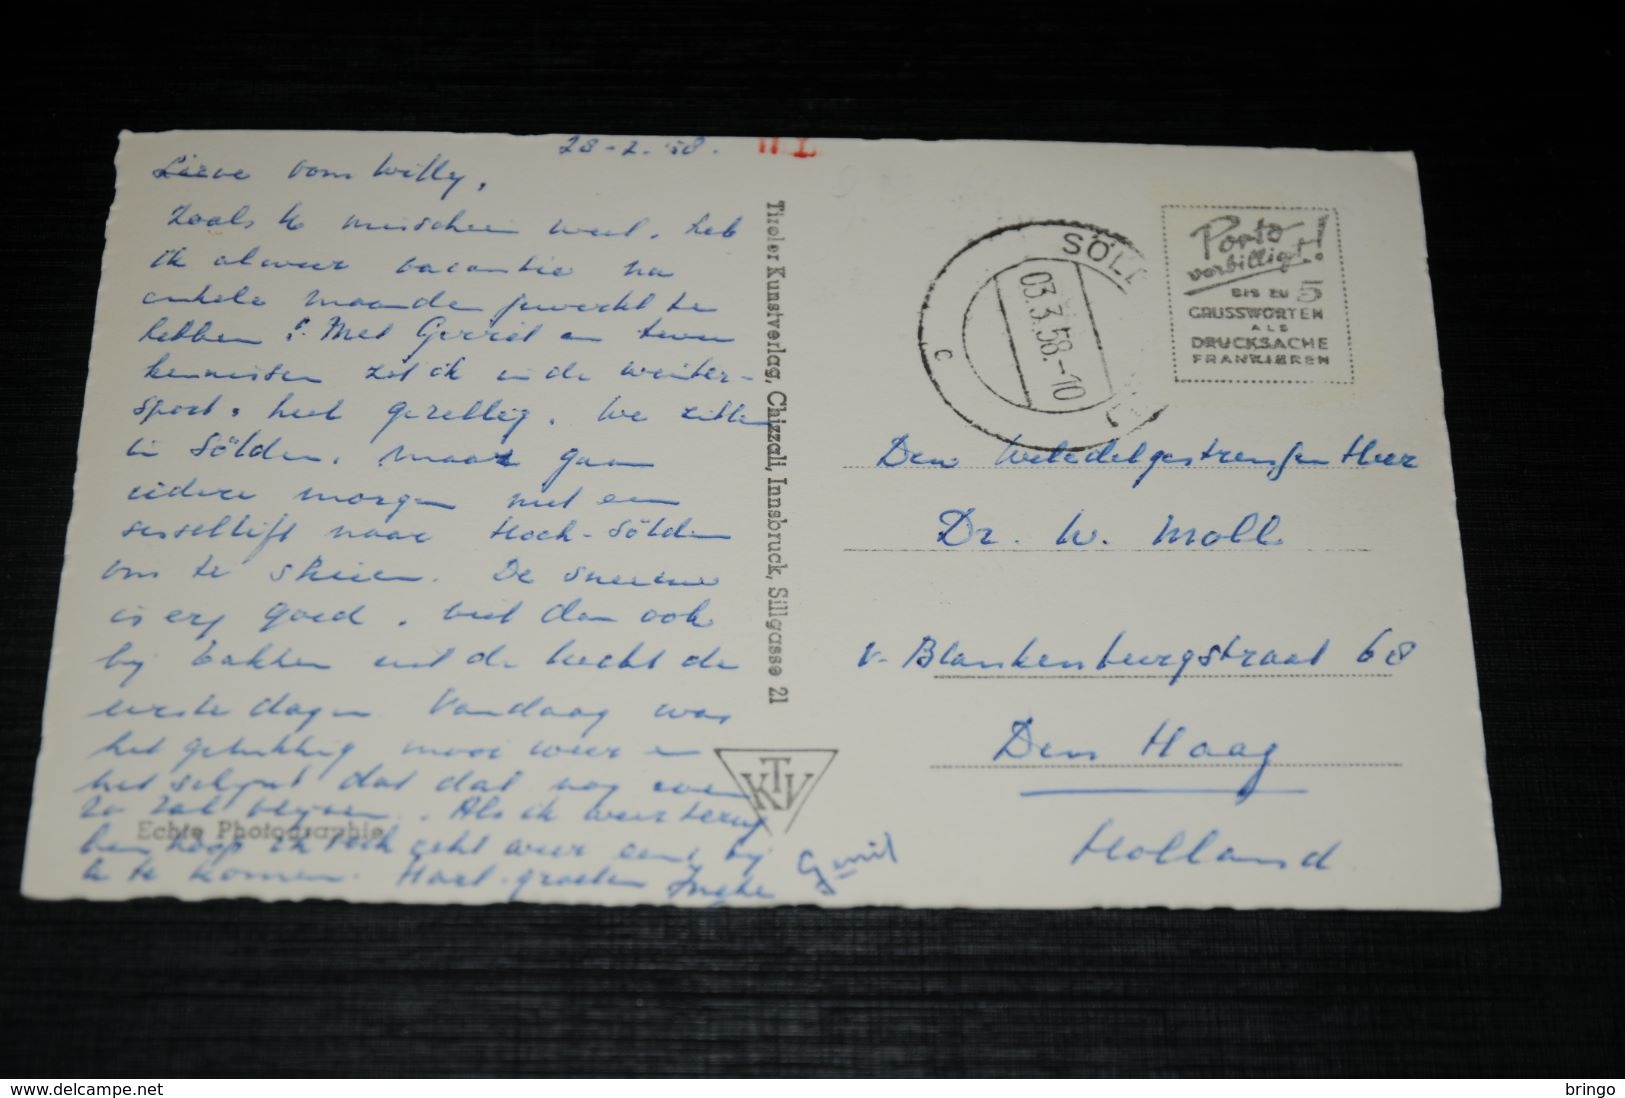 28-2-'58.
Lieve oom Willy,
Zoals U misschien weet, heb
ik alweer vacantie na
enkele maanden gewerkt te
hebben! Met Gerrit en twee
kennissen zit ik in de winter-
sport, heel gezellig. We zitten
in Sölden, maar gaan
iedere morgen met een
sessellift naar Hoch-Sölden
om te skieen. De sneeuw
is erg goed, viel dan ook
bij bakken uit de lucht de
eerste dagen. Vandaag was
het gelukkig mooi weer en
het schijnt dat dat nog even
zo zal blijven. Als ik weer terug
ben hoop ik toch echt weer eens bij
U te komen. Hart. groeten Ineke
Gerrit
Echte Photographie
Tiroler Kunstverlag, Chizzali, Innsbruck, Sillgasse 21
KTV
SÖL
03.3.58.-10
c
Porto
verbilligt!
BIS ZU 5
GRUSSWORTEN
ALS
DRUCKSACHE
FRANKIEREN
Den Weledelgestrengen Heer
Dr. W. Moll.
v. Blankenburgstraat 68
Den Haag
Holland
www.delcampe.net
bringo